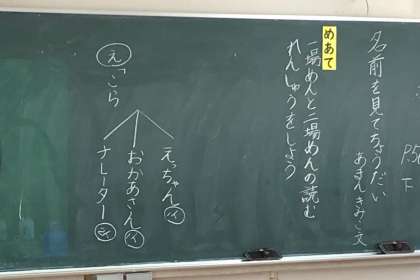 P.5
下
名前を見てちょうだい
あまんきみこ文
めあて
一場めんと二場めんの読む
れんしゅうをしよう
え「こら
えっちゃん イ
おかあさん イ
ナレーター